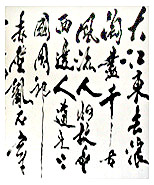 大江東去浪
淘盡千古
風流人物故壘
西邊人道是三
國周郎
赤壁亂石穿